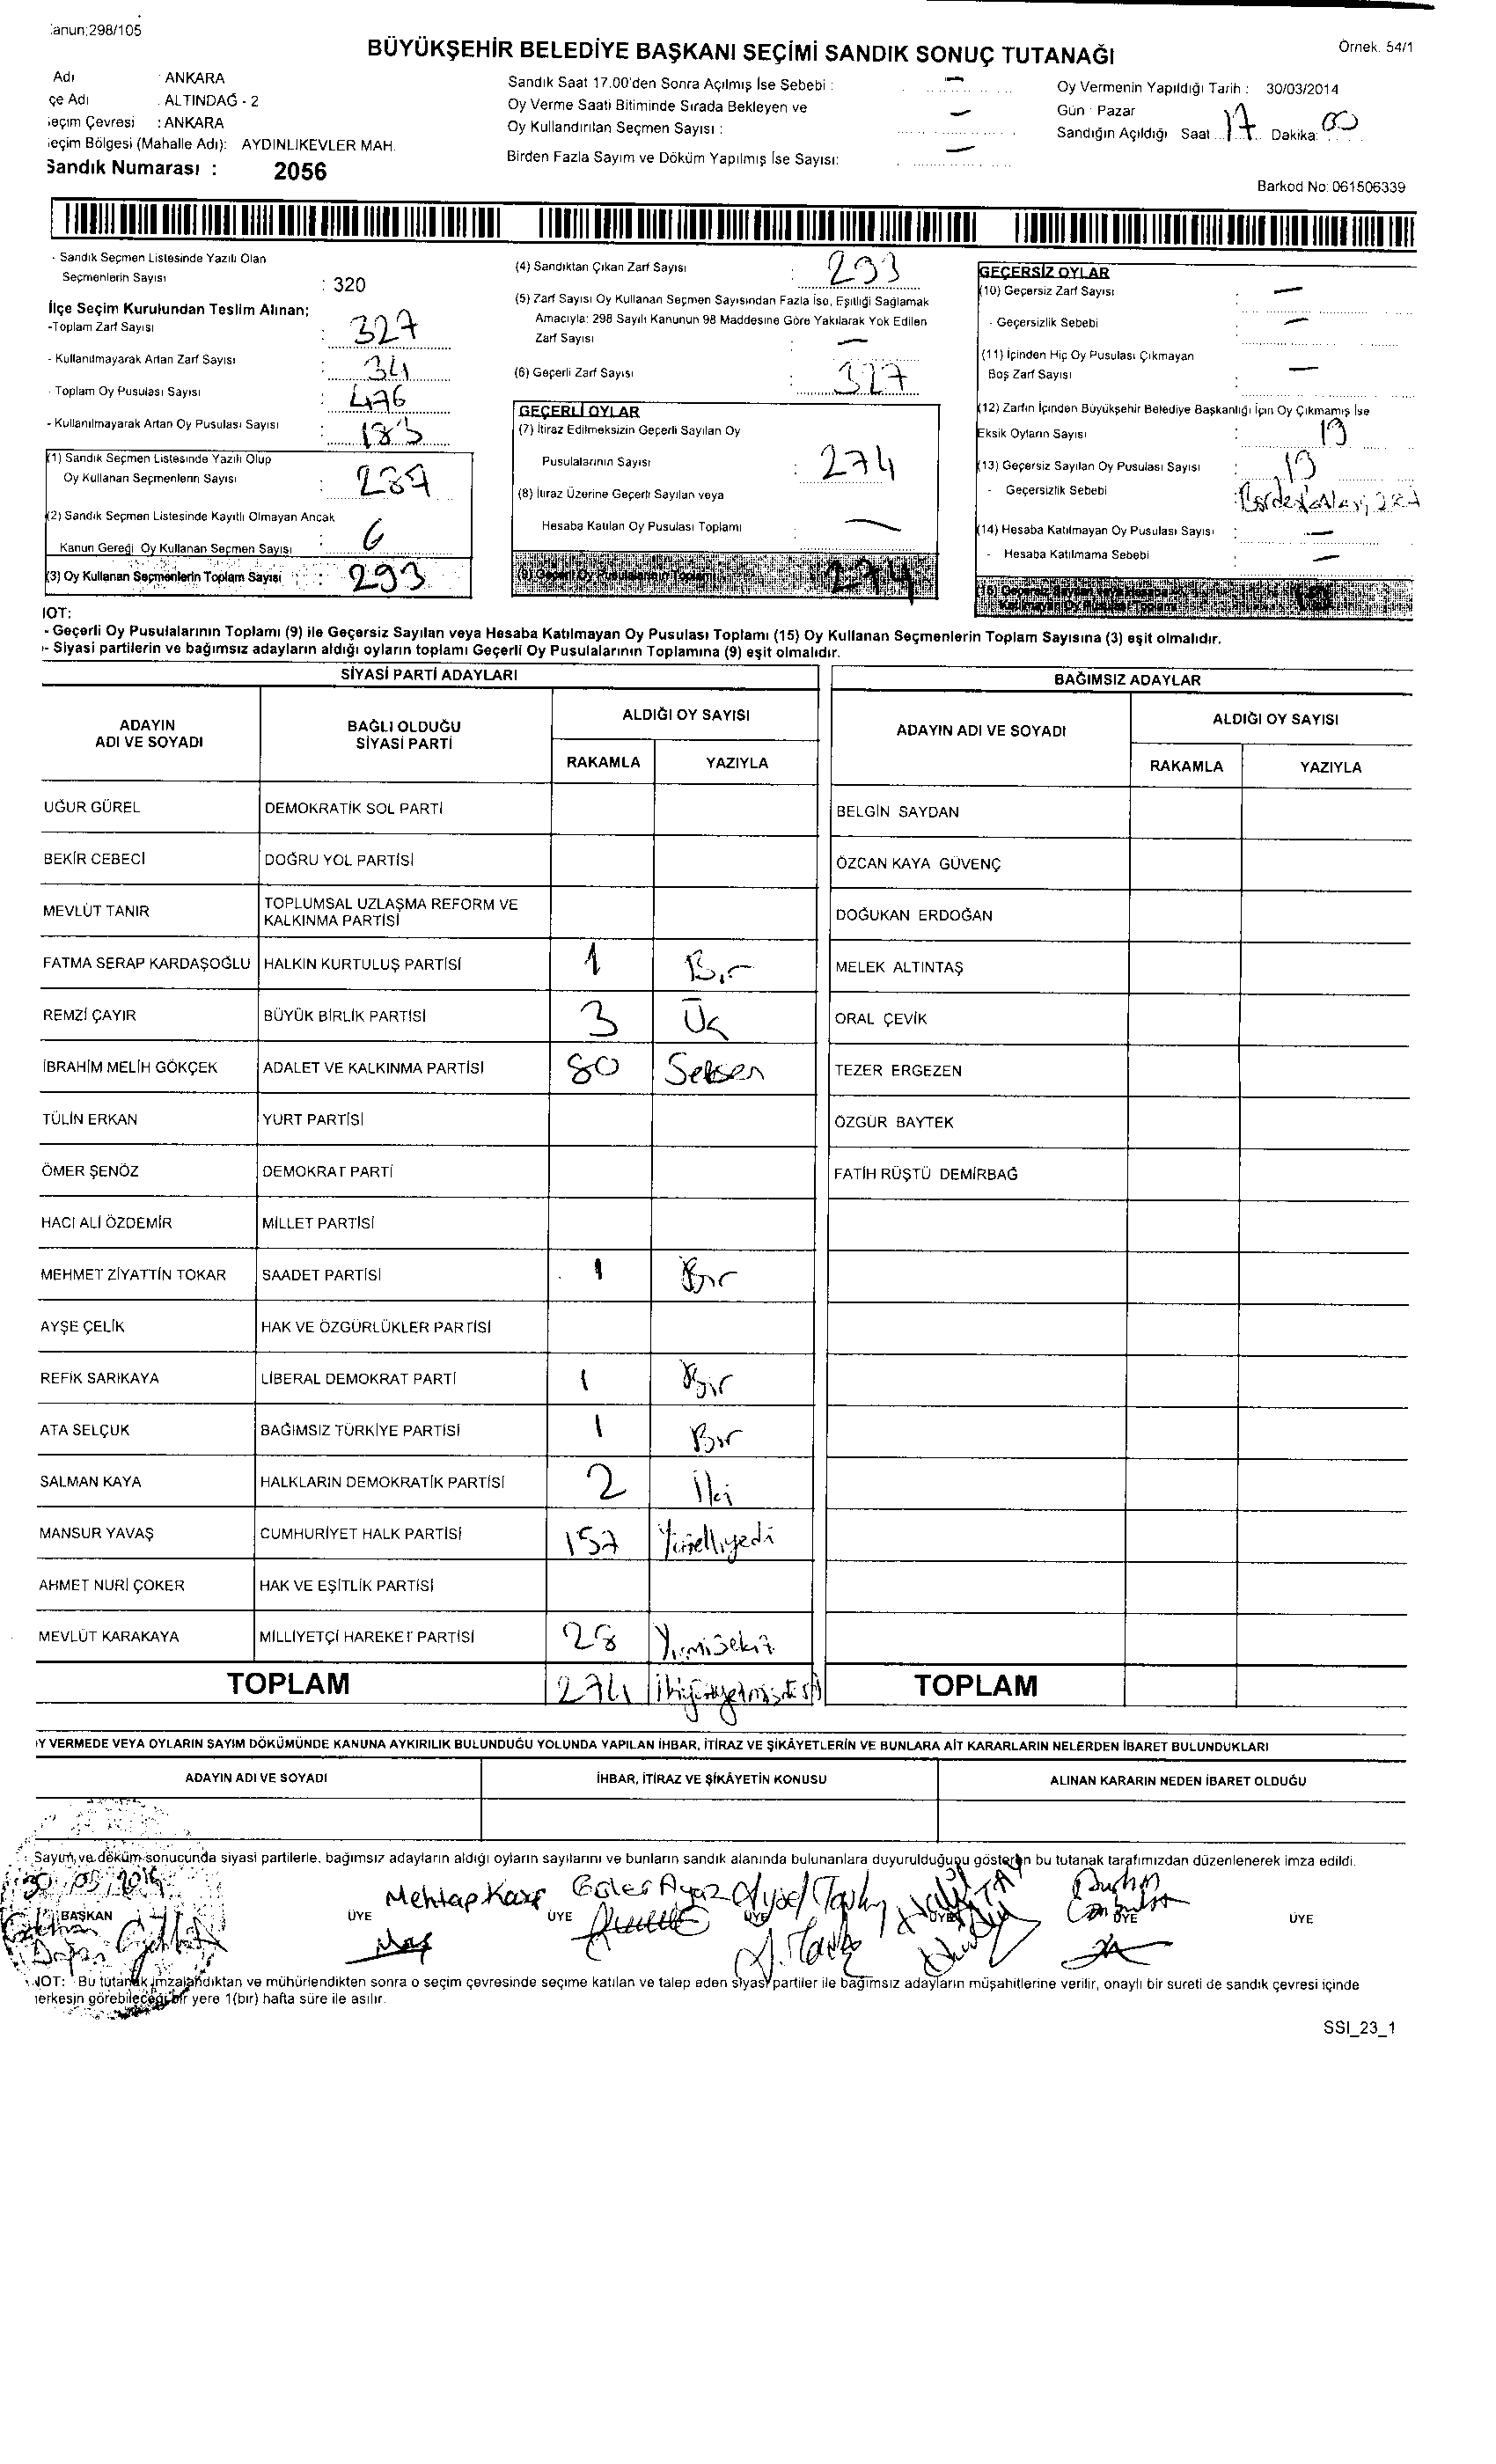 Kanun;298/105
BÜYÜKŞEHİR BELEDİYE BAŞKANI SEÇİMİ SANDIK SONUÇ TUTANAĞI
Örnek. 54/1
Adı : ANKARA
çe Adı : ALTINDAĞ - 2
eçim Çevresi : ANKARA
eçim Bölgesi (Mahalle Adı): AYDINLIKEVLER MAH.
Sandık Numarası : 2056
Sandık Saat 17.00'den Sonra Açılmış İse Sebebi : —
Oy Verme Saati Bitiminde Sırada Bekleyen ve
Oy Kullandırılan Seçmen Sayısı : —
Birden Fazla Sayım ve Döküm Yapılmış İse Sayısı: —
Oy Vermenin Yapıldığı Tarih : 30/03/2014
Gün : Pazar
Sandığın Açıldığı Saat 17 Dakika: 00
Barkod No: 061506339
- Sandık Seçmen Listesinde Yazılı Olan
Seçmenlerin Sayısı : 320
İlçe Seçim Kurulundan Teslim Alınan;
-Toplam Zarf Sayısı : 327
- Kullanılmayarak Artan Zarf Sayısı : 34
- Toplam Oy Pusulası Sayısı : 476
- Kullanılmayarak Artan Oy Pusulası Sayısı : 183
(1) Sandık Seçmen Listesinde Yazılı Olup
Oy Kullanan Seçmenlerin Sayısı : 287
(2) Sandık Seçmen Listesinde Kayıtlı Olmayan Ancak
Kanun Gereği Oy Kullanan Seçmen Sayısı : 6
(3) Oy Kullanan Seçmenlerin Toplam Sayısı : 293
(4) Sandıktan Çıkan Zarf Sayısı : 293
(5) Zarf Sayısı Oy Kullanan Seçmen Sayısından Fazla İse, Eşitliği Sağlamak
Amacıyla: 298 Sayılı Kanunun 98 Maddesine Göre Yakılarak Yok Edilen
Zarf Sayısı : —
(6) Geçerli Zarf Sayısı : 327
GEÇERLİ OYLAR
(7) İtiraz Edilmeksizin Geçerli Sayılan Oy
Pusulalarının Sayısı : 274
(8) İtiraz Üzerine Geçerli Sayılan veya
Hesaba Katılan Oy Pusulası Toplamı : —
(9) Geçerli Oy Pusulalarının Toplamı 274
GEÇERSİZ OYLAR
(10) Geçersiz Zarf Sayısı : —
- Geçersizlik Sebebi : —
(11) İçinden Hiç Oy Pusulası Çıkmayan
Boş Zarf Sayısı : —
(12) Zarfın İçinden Büyükşehir Belediye Başkanlığı İçin Oy Çıkmamış İse
Eksik Oyların Sayısı : 19
(13) Geçersiz Sayılan Oy Pusulası Sayısı : 19
- Geçersizlik Sebebi :
(14) Hesaba Katılmayan Oy Pusulası Sayısı : —
- Hesaba Katılmama Sebebi : —
(15) Geçersiz Sayılan veya Hesaba
Katılmayan Oy Pusulası Toplamı 19
NOT:
- Geçerli Oy Pusulalarının Toplamı (9) ile Geçersiz Sayılan veya Hesaba Katılmayan Oy Pusulası Toplamı (15) Oy Kullanan Seçmenlerin Toplam Sayısına (3) eşit olmalıdır.
- Siyasi partilerin ve bağımsız adayların aldığı oyların toplamı Geçerli Oy Pusulalarının Toplamına (9) eşit olmalıdır.
SİYASİ PARTİ ADAYLARI
ADAYIN ADI VE SOYADI BAĞLI OLDUĞU SİYASİ PARTİ ALDIĞI OY SAYISI
RAKAMLA YAZIYLA
UĞUR GÜREL DEMOKRATİK SOL PARTİ
BEKİR CEBECİ DOĞRU YOL PARTİSİ
MEVLÜT TANIR TOPLUMSAL UZLAŞMA REFORM VE KALKINMA PARTİSİ
FATMA SERAP KARDAŞOĞLU HALKIN KURTULUŞ PARTİSİ 1 Bir
REMZİ ÇAYIR BÜYÜK BİRLİK PARTİSİ 3 Üç
İBRAHİM MELİH GÖKÇEK ADALET VE KALKINMA PARTİSİ 80 Seksen
TÜLİN ERKAN YURT PARTİSİ
ÖMER ŞENÖZ DEMOKRAT PARTİ
HACI ALİ ÖZDEMİR MİLLET PARTİSİ
MEHMET ZİYATTİN TOKAR SAADET PARTİSİ 1 Bir
AYŞE ÇELİK HAK VE ÖZGÜRLÜKLER PARTİSİ
REFİK SARIKAYA LİBERAL DEMOKRAT PARTİ 1 Bir
ATA SELÇUK BAĞIMSIZ TÜRKİYE PARTİSİ 1 Bir
SALMAN KAYA HALKLARIN DEMOKRATİK PARTİSİ 2 İki
MANSUR YAVAŞ CUMHURİYET HALK PARTİSİ 157 Yüzelliyedi
AHMET NURİ ÇOKER HAK VE EŞİTLİK PARTİSİ
MEVLÜT KARAKAYA MİLLİYETÇİ HAREKET PARTİSİ 28 Yirmisekiz
TOPLAM 274
BAĞIMSIZ ADAYLAR
ADAYIN ADI VE SOYADI ALDIĞI OY SAYISI
RAKAMLA YAZIYLA
BELGİN SAYDAN
ÖZCAN KAYA GÜVENÇ
DOĞUKAN ERDOĞAN
MELEK ALTINTAŞ
ORAL ÇEVİK
TEZER ERGEZEN
ÖZGÜR BAYTEK
FATİH RÜŞTÜ DEMİRBAĞ
TOPLAM
Y VERMEDE VEYA OYLARIN SAYIM DÖKÜMÜNDE KANUNA AYKIRILIK BULUNDUĞU YOLUNDA YAPILAN İHBAR, İTİRAZ VE ŞİKÂYETLERİN VE BUNLARA AİT KARARLARIN NELERDEN İBARET BULUNDUKLARI
ADAYIN ADI VE SOYADI İHBAR, İTİRAZ VE ŞİKÂYETİN KONUSU ALINAN KARARIN NEDEN İBARET OLDUĞU
Sayım ve döküm sonucunda siyasi partilerle, bağımsız adayların aldığı oyların sayılarını ve bunların sandık alanında bulunanlara duyurulduğunu gösteren bu tutanak tarafımızdan düzenlenerek imza edildi.
30/03/2014
Mehtap
BAŞKAN ÜYE ÜYE ÜYE ÜYE ÜYE ÜYE
NOT: Bu tutanak imzalandıktan ve mühürlendikten sonra o seçim çevresinde seçime katılan ve talep eden siyasi partiler ile bağımsız adayların müşahitlerine verilir, onaylı bir sureti de sandık çevresi içinde
herkesin görebileceği bir yere 1(bir) hafta süre ile asılır.
SSI_23_1